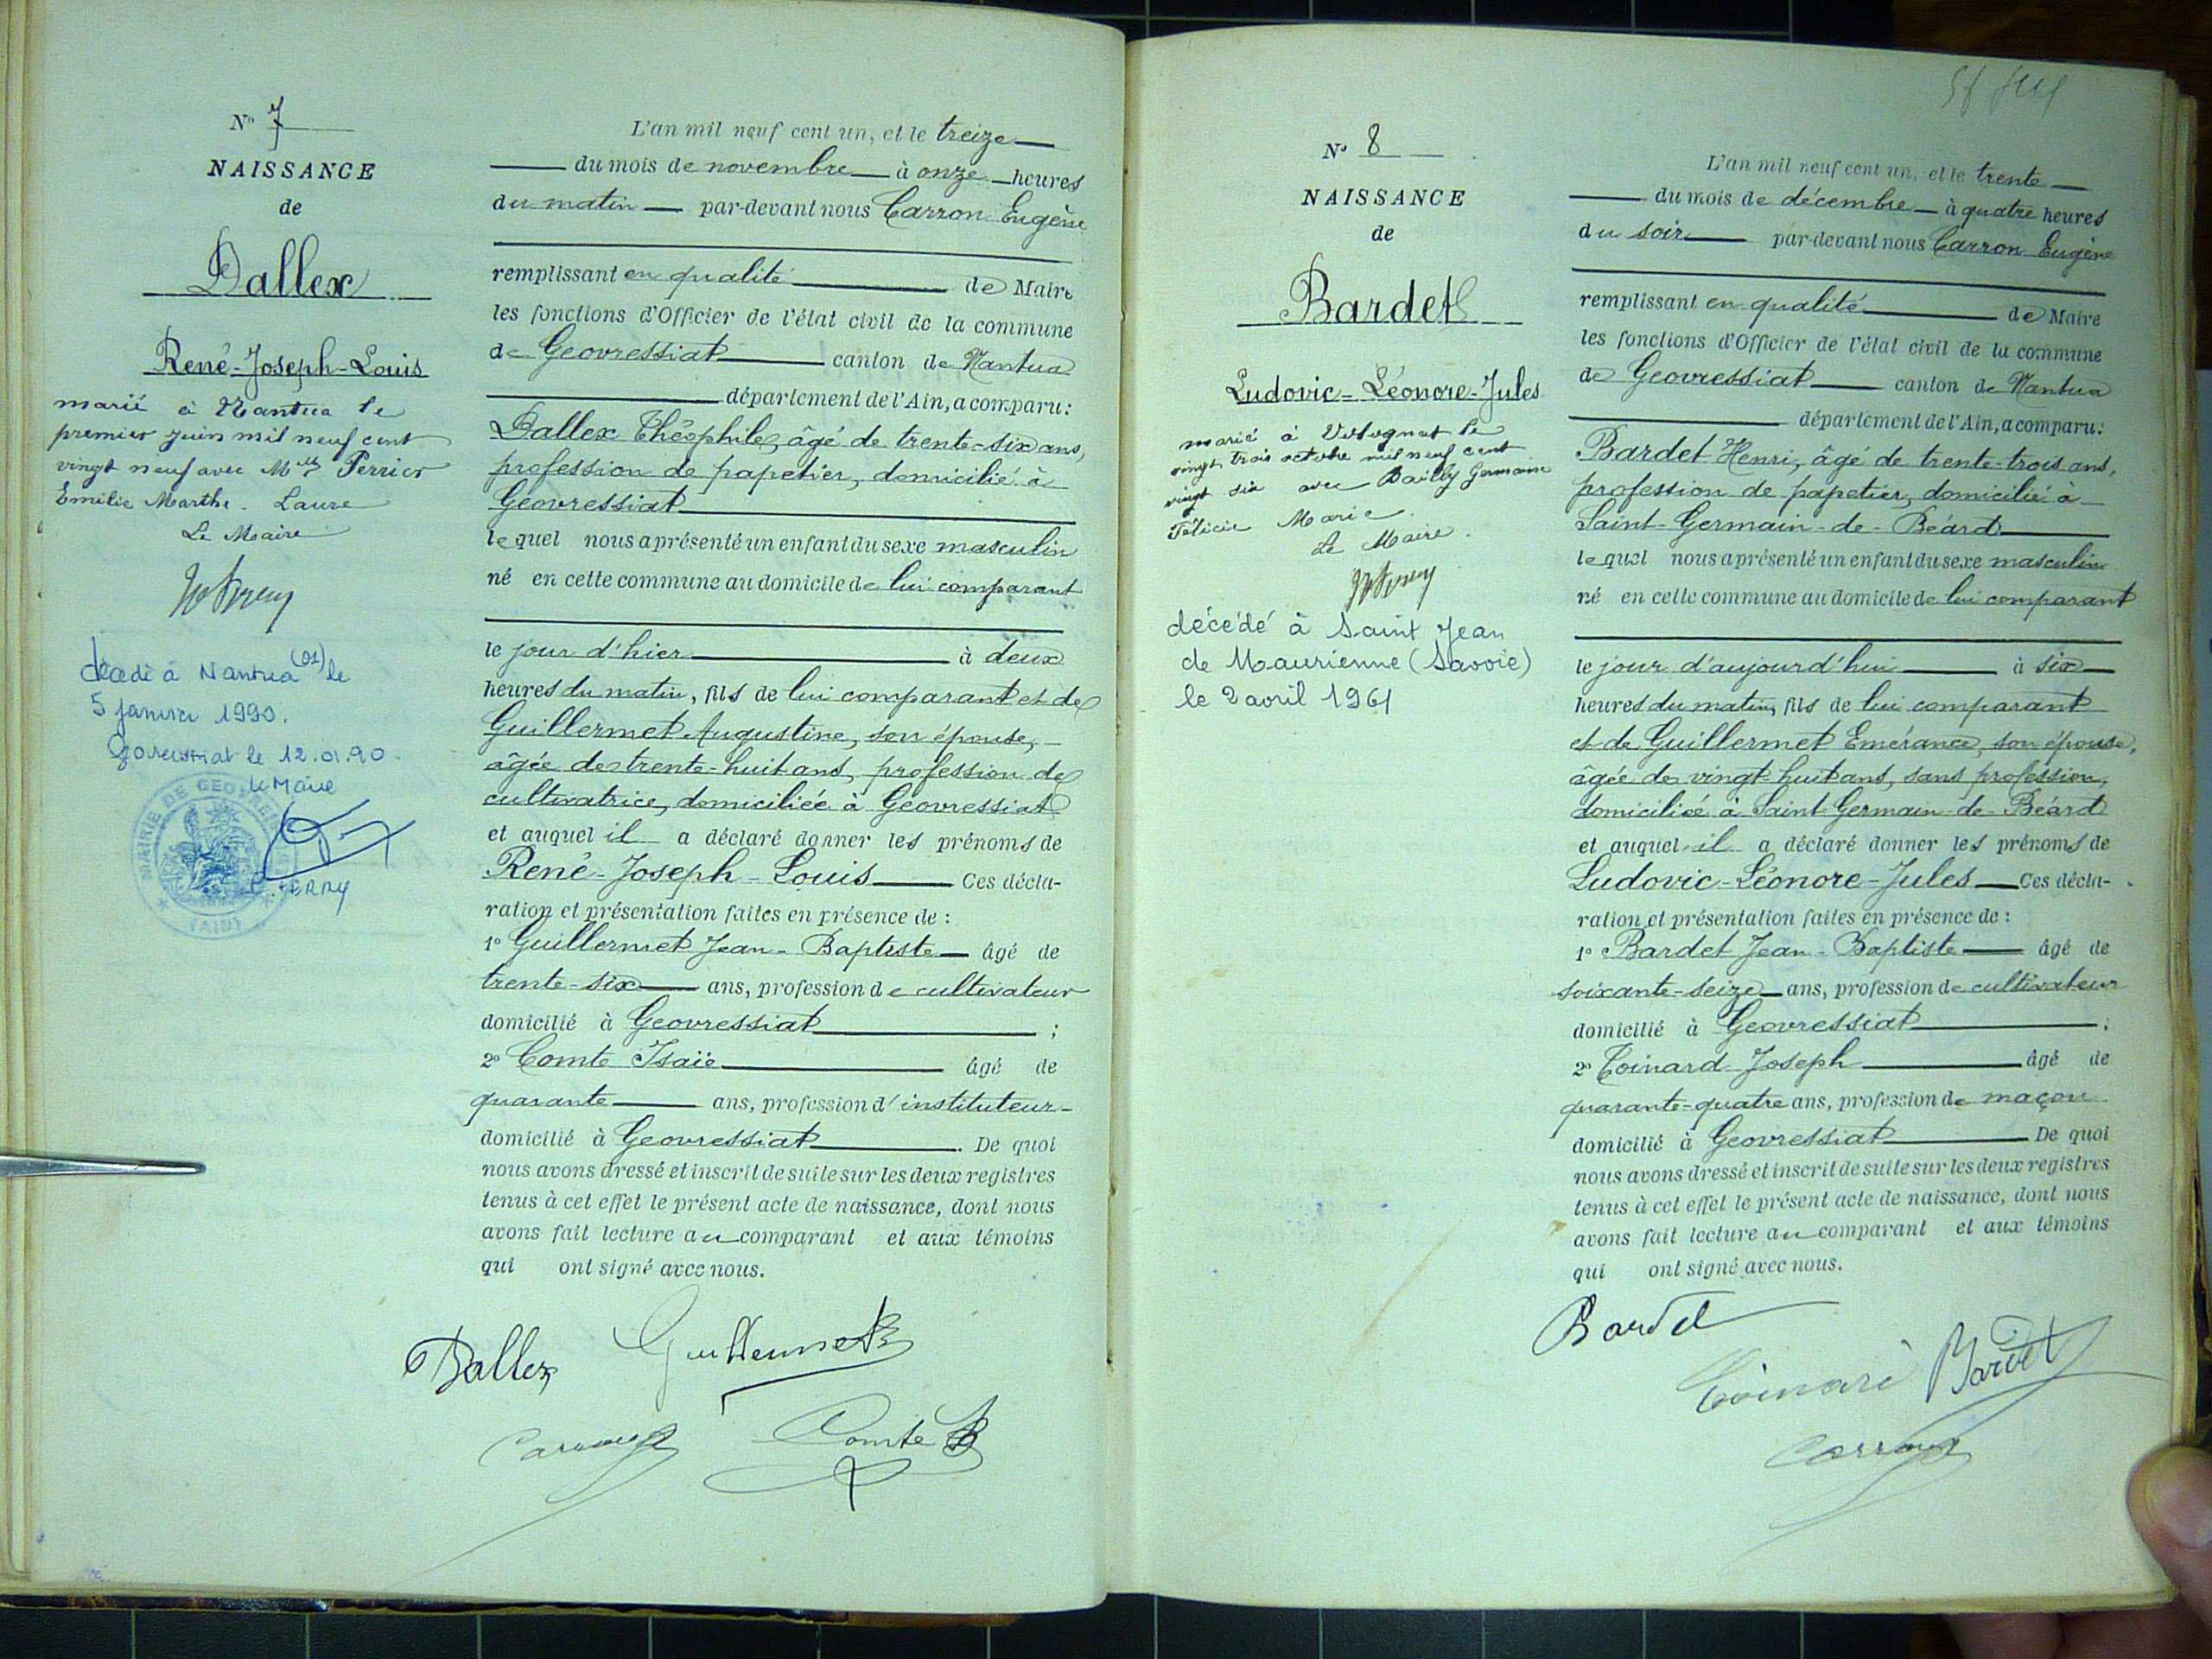 N° 7
NAISSANCE
de
Dallex
René-Joseph-Louis
marié à Nantua le
premier juin mil neuf cent
vingt neuf avec Mlle Perrier
Emilie Marthe. Laure
Le Maire
décédé à Nantua (01) le
5 janvier 1990.
Géovressiat le 12.01.90.
le Maire
MAIRIE DE GEOVRESSIAT
(AIN)
L'an mil neuf cent un, et le treize
du mois de novembre à onze heures
du matin par-devant nous Carron Eugène
remplissant en qualité de Maire
les fonctions d'Officier de l'état civil de la commune
de Géovressiat canton de Nantua
département de l'Ain, a comparu:
Dallex Théophile, âgé de trente-six ans,
profession de papetier, domicilié à
Géovressiat
lequel nous a présenté un enfant du sexe masculin
né en cette commune au domicile de lui comparant
le jour d'hier à deux
heures du matin, fils de lui comparant et de
Guillermet Augustine, son épouse,
âgée de trente-huit ans, profession de
cultivatrice, domiciliée à Géovressiat
et auquel il a déclaré donner les prénoms de
René-Joseph-Louis Ces décla-
ration et présentation faites en présence de :
1° Guillermet Jean-Baptiste âgé de
trente-six ans, profession de cultivateur
domicilié à Géovressiat ;
2° Comte Isaïe âgé de
quarante ans, profession d'instituteur
domicilié à Géovressiat. De quoi
nous avons dressé et inscrit de suite sur les deux registres
tenus à cet effet le présent acte de naissance, dont nous
avons fait lecture au comparant et aux témoins
qui ont signé avec nous.
Dallex Guillermet
Carron Comte
N° 8
NAISSANCE
de
Bardet
Ludovic-Léonore-Jules
marié à Volognat le
vingt trois octobre mil neuf cent
vingt six avec Bailly Germaine
Félicie Marie.
Le Maire.
décédé à Saint Jean
de Maurienne (Savoie)
le 2 avril 1961
L'an mil neuf cent un, et le trente
du mois de décembre à quatre heures
du soir par-devant nous Carron Eugène
remplissant en qualité de Maire
les fonctions d'Officier de l'état civil de la commune
de Géovressiat canton de Nantua
département de l'Ain, a comparu:
Bardet Henri, âgé de trente-trois ans,
profession de papetier, domicilié à
Saint-Germain-de-Béard
lequel nous a présenté un enfant du sexe masculin
né en cette commune au domicile de lui comparant
le jour d'aujourd'hui à six
heures du matin, fils de lui comparant
et de Guillermet Emérance, son épouse,
âgée de vingt-huit ans, sans profession,
domiciliée à Saint-Germain-de-Béard
et auquel il a déclaré donner les prénoms de
Ludovic-Léonore-Jules Ces décla-
ration et présentation faites en présence de :
1° Bardet Jean-Baptiste âgé de
soixante-seize ans, profession de cultivateur
domicilié à Géovressiat ;
2° Coinard Joseph âgé de
quarante-quatre ans, profession de maçon
domicilié à Géovressiat De quoi
nous avons dressé et inscrit de suite sur les deux registres
tenus à cet effet le présent acte de naissance, dont nous
avons fait lecture au comparant et aux témoins
qui ont signé avec nous.
Bardet
Coinard Bardet
Carron